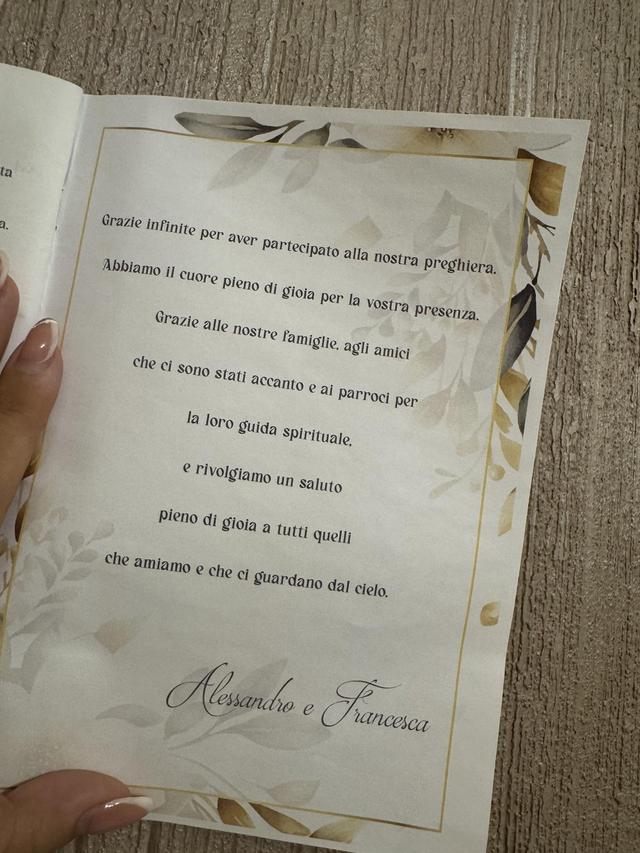 ta
a.
Grazie infinite per aver partecipato alla nostra preghiera.
Abbiamo il cuore pieno di gioia per la vostra presenza.
Grazie alle nostre famiglie, agli amici
che ci sono stati accanto e ai parroci per
la loro guida spirituale,
e rivolgiamo un saluto
pieno di gioia a tutti quelli
che amiamo e che ci guardano dal cielo.
Alessandro e Francesca